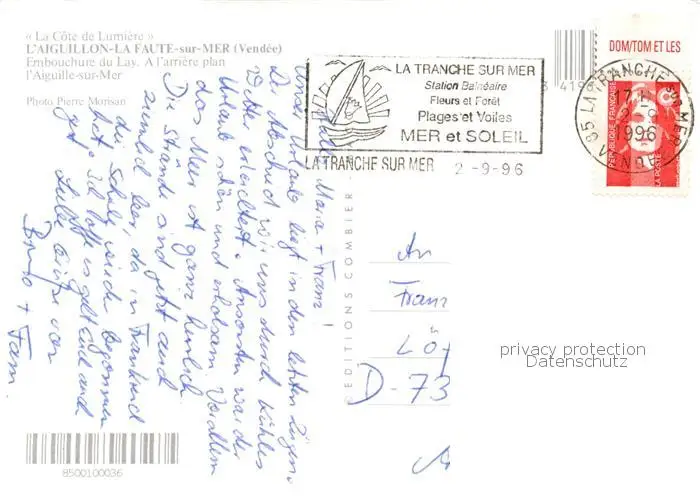 « La Côte de Lumière »
L'AIGUILLON-LA FAUTE-sur-MER (Vendée)
Embouchure du Lay. A l'arrière plan
l'Aiguille-sur-Mer
Photo Pierre Morisan
DOM/TOM ET LES
LA TRANCHE SUR MER
Station Balnéaire
Fleurs et Forêt
Plages et Voiles
MER et SOLEIL
LA TRANCHE SUR MER 2-9-96
LA TRANCHE SUR MER
17H
2-9
1996
RÉPUBLIQUE FRANÇAISE
LA POSTE
Maria + Franz!
Unser Urlaub liegt in den letzten Zügen.
Der Abschied wird uns durch kühles
Wetter erleichtert. Ansonsten war der
Urlaub schön und erholsam. Vor allem
das Meer ist ganz herrlich.
Die Strände sind jetzt auch
ziemlich leer, da in Frankreich
die Schule wieder begonnen
hat. Ich hoffe es geht euch
gut. Liebe Grüße von
+ Fam
EDITIONS COMBIER
An
Franz
D-73
privacy protection
Datenschutz
8500100036